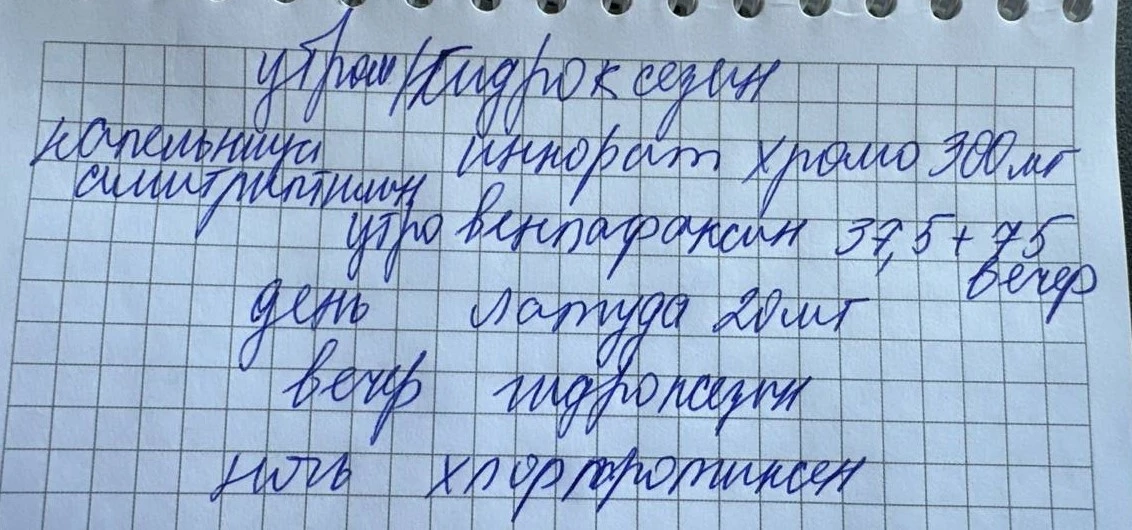 утром/гидроксезин
капельница инкорат хромо 300мг
амитриптилин
утро венлафаксин 37,5 + 75
вечер
день латуда 20мг
вечер гидроксезин
ночь хлорпротиксен